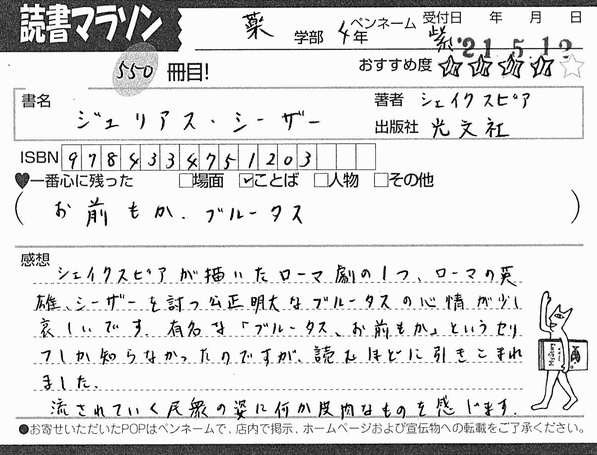 読書マラソン
薬 学部 4年 ペンネーム 紫 受付日 年 月 日
'21 5.12
550 冊目! おすすめ度 ★★★★☆
書名 ジュリアス・シーザー
著者 シェイクスピア
出版社 光文社
ISBN 9784334751203
♥一番心に残った □場面 ☑ことば □人物 □その他
(お前もか、ブルータス)
感想
シェイクスピアが描いたローマ劇の1つ、ローマの英
雄、シーザーを討つ公正明大なブルータスの心情が少し
哀しいです。有名な「ブルータス、お前もか」というセリ
フしか知らなかったのですが、読むほどに引きこまれ
ました。
流されていく民衆の姿に何か皮肉なものを感じます。
●お寄せいただいたPOPはペンネームで、店内で掲示、ホームページおよび宣伝物への転載をご了承ください。